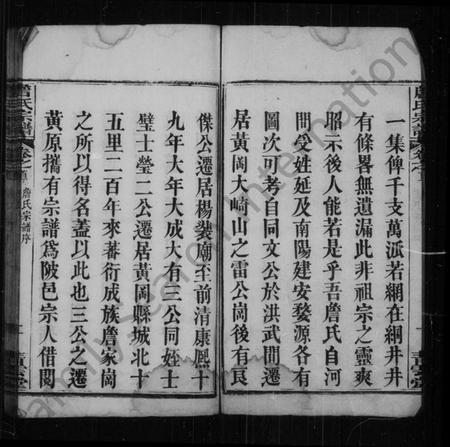 一集俾千支萬派若網在綱井井
有條畧無遺漏此非祖宗之靈爽
昭示後人能若是乎吾詹氏自河
間受姓延及南陽建安婺源各有
圖次可考自同文公於洪武間遷
居黃岡大崎山之雷公崗後有長
傑公遷居楊裝廟至前清康熙十
九年大年大成大有三公同姪士
璧士瑩二公遷居黃岡縣城北十
五里二百年來蕃衍成族詹家崗
之所以得名蓋以此也三公之遷
黃原攜有宗譜爲陂邑宗人借閱
詹氏宗譜
卷之
詹氏宗譜序